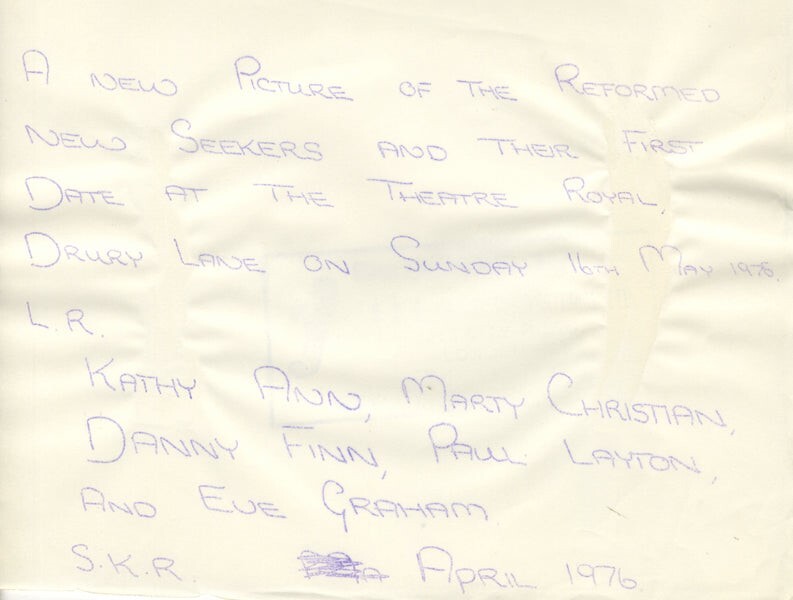 A NEW PICTURE OF THE REFORMED
NEW SEEKERS AND THEIR FIRST
DATE AT THE THEATRE ROYAL,
DRURY LANE ON SUNDAY 16TH MAY 1976.
L.R.
KATHY ANN, MARTY CHRISTIAN,
DANNY FINN, PAUL LAYTON,
AND EVE GRAHAM
S.K.R. APRIL 1976.